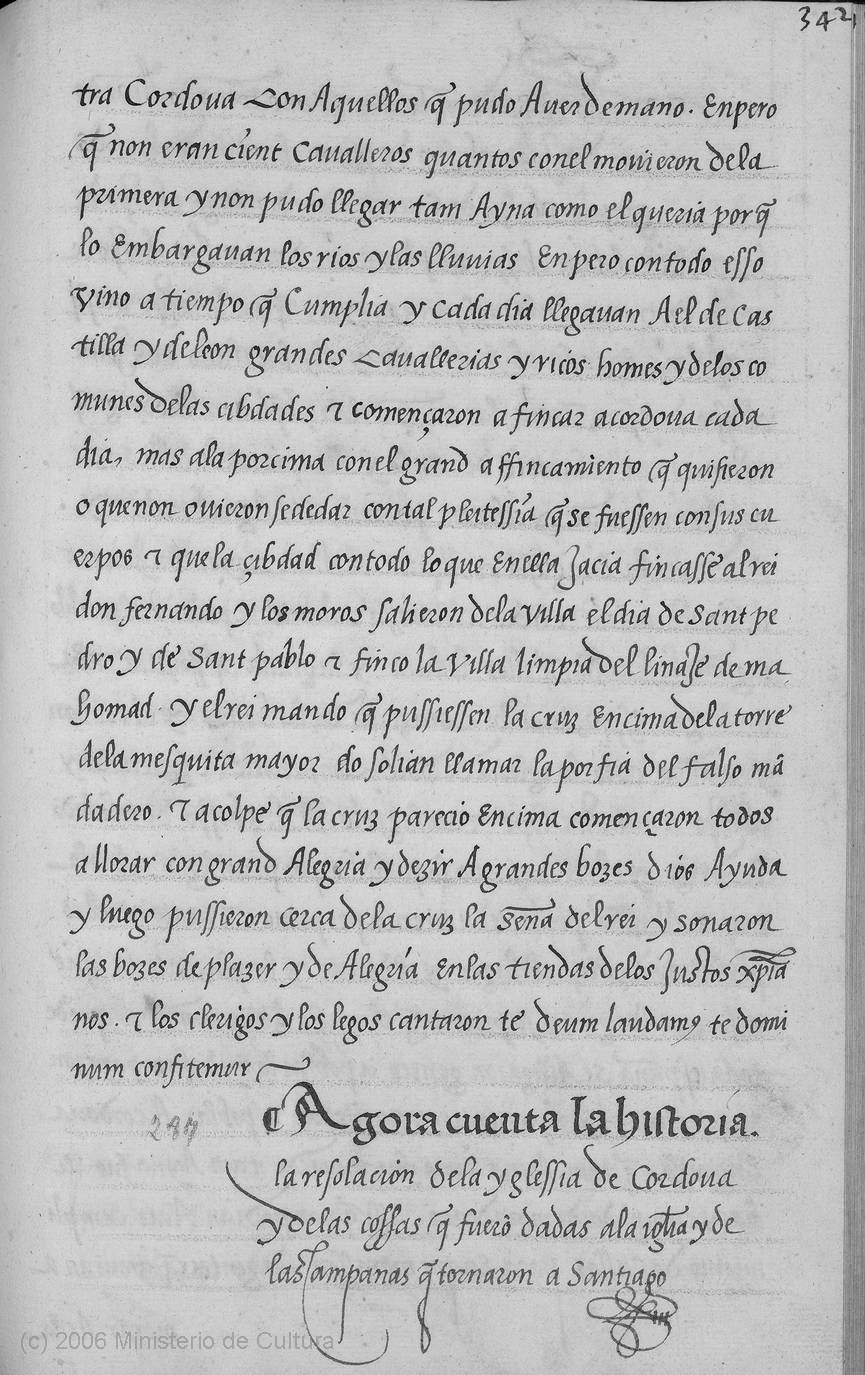 342
tra Cordova Con Aquellos q̃ pudo Aver de mano. Enpero
q̃ non eran cient Cavalleros quantos con el movieron de la
primera y non pudo llegar tam Ayna como el queria por q̃
lo Embargavan los rios y las lluvias Enpero con todo esso
vino a tiempo q̃ Cumplia y Cada dia llegavan A el de Cas
tilla y de leon grandes Cavallerias y ricos homes y delos co
munes de las cibdades ⁊ començaron a fincar a cordova cada
dia, mas a la por cima con el grand affincamiento q̃ quisieron
o que non ovieron se de dar con tal pleitessia q̃ se fuessen con sus cu
erpos ⁊ que la çibdad con todo lo que En ella Jacia fincasse al rei
don fernando y los moros salieron de la villa el dia de Sant pe
dro y de Sant pablo ⁊ finco la villa limpia del linaJe de ma
homad y el rei mando q̃ pussiessen la cruz Encima de la torre
de la mesquita mayor do solian llamar la porfia del falso mã
dadero. ⁊ a colpe q̃ la cruz parecio Encima començaron todos
a llorar con grand Alegria y dezir A grandes bozes dios Ayuda
y luego pussieron cerca de la cruz la seña del rei y sonaron
las bozes de plazer y de Alegría En las tiendas de los Justos xp̃ia
nos. ⁊ los clerigos y los legos cantaron te deum laudamꝰ te domi
num confitemur
287
¶ Agora cuenta la historia.
la resolacion de la yglessia de Cordova
y de las cossas q̃ fuerõ dadas a la iglia y de
las Campanas q̃ tornaron a Santiago
(c) 2006 Ministerio de Cultura